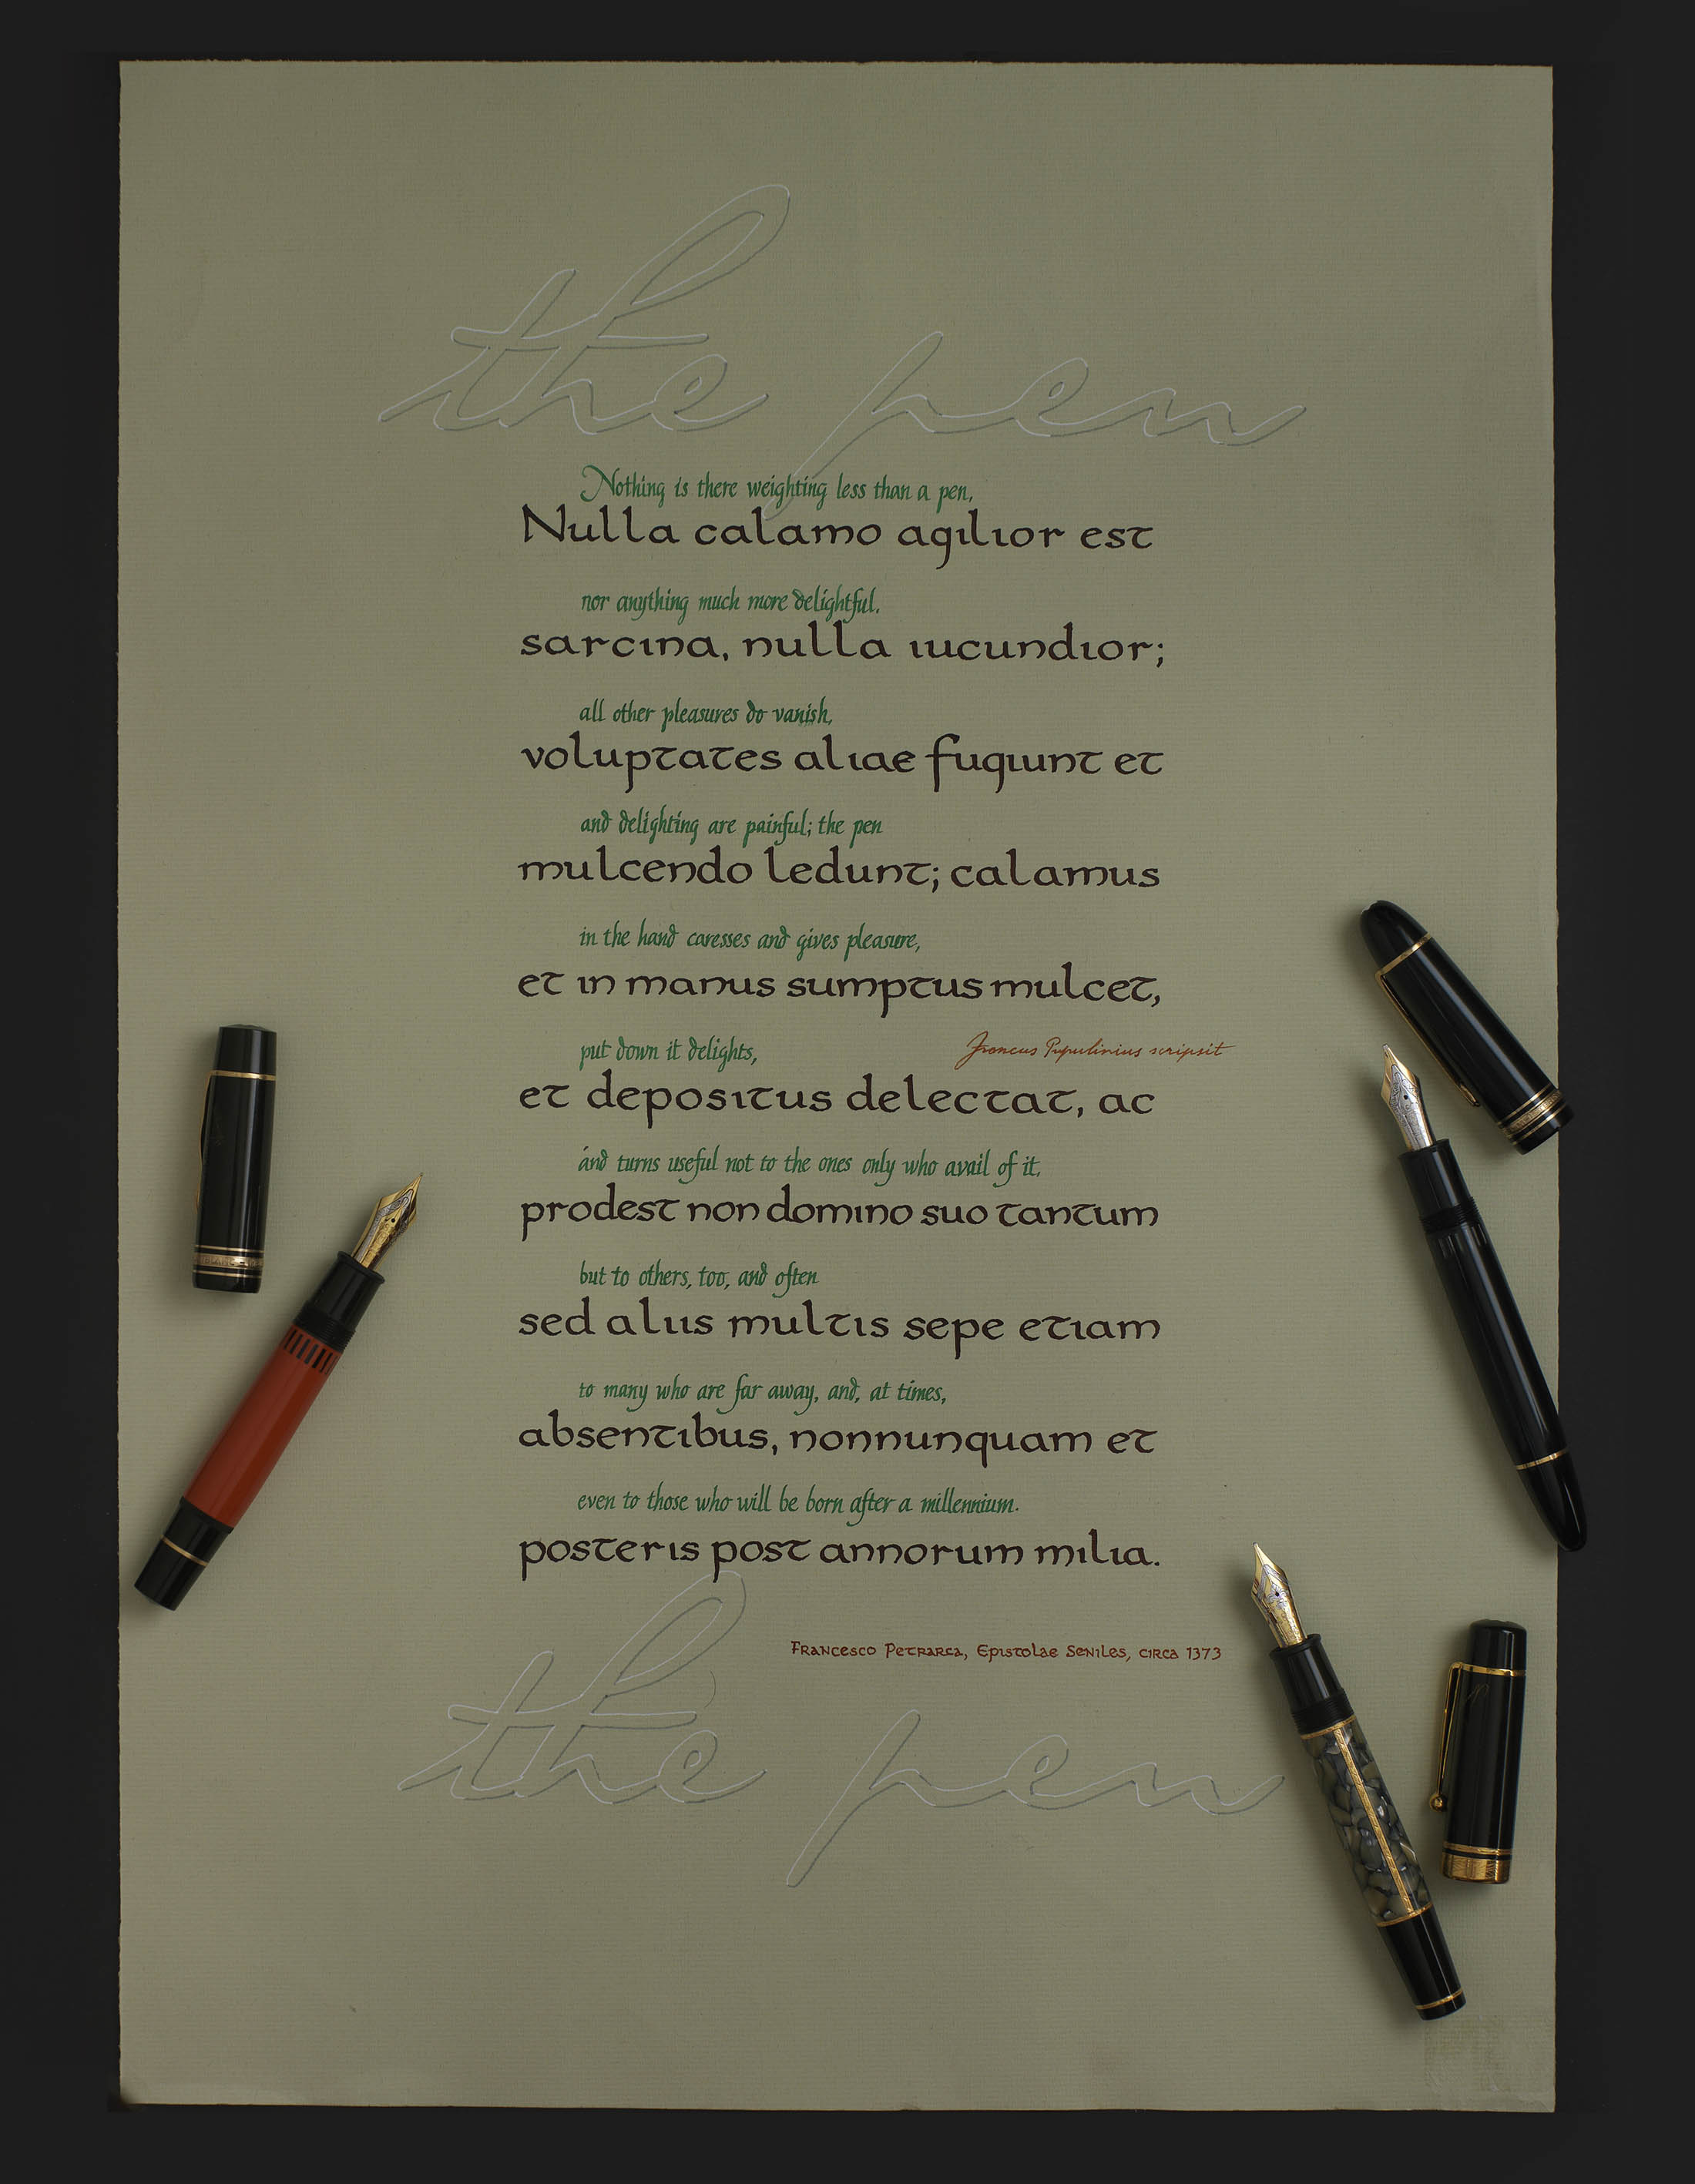 the pen
Nothing is there weighting less than a pen,
Nulla calamo agilior est
nor anything much more delightful.
sarcina, nulla iucundior;
all other pleasures do vanish,
voluptates aliae fugiunt et
and delighting are painful; the pen
mulcendo ledunt; calamus
in the hand caresses and gives pleasure,
et in manus sumptus mulcet,
put down it delights,
Francus Pupulinius scripsit
et depositus delectat, ac
and turns useful not to the ones only who avail of it,
prodest non domino suo tantum
but to others, too, and often
sed aliis multis sepe etiam
to many who are far away, and, at times,
absentibus, nonnunquam et
even to those who will be born after a millennium.
posteris post annorum milia.
Francesco Petrarca, Epistolae Seniles, circa 1373
the pen